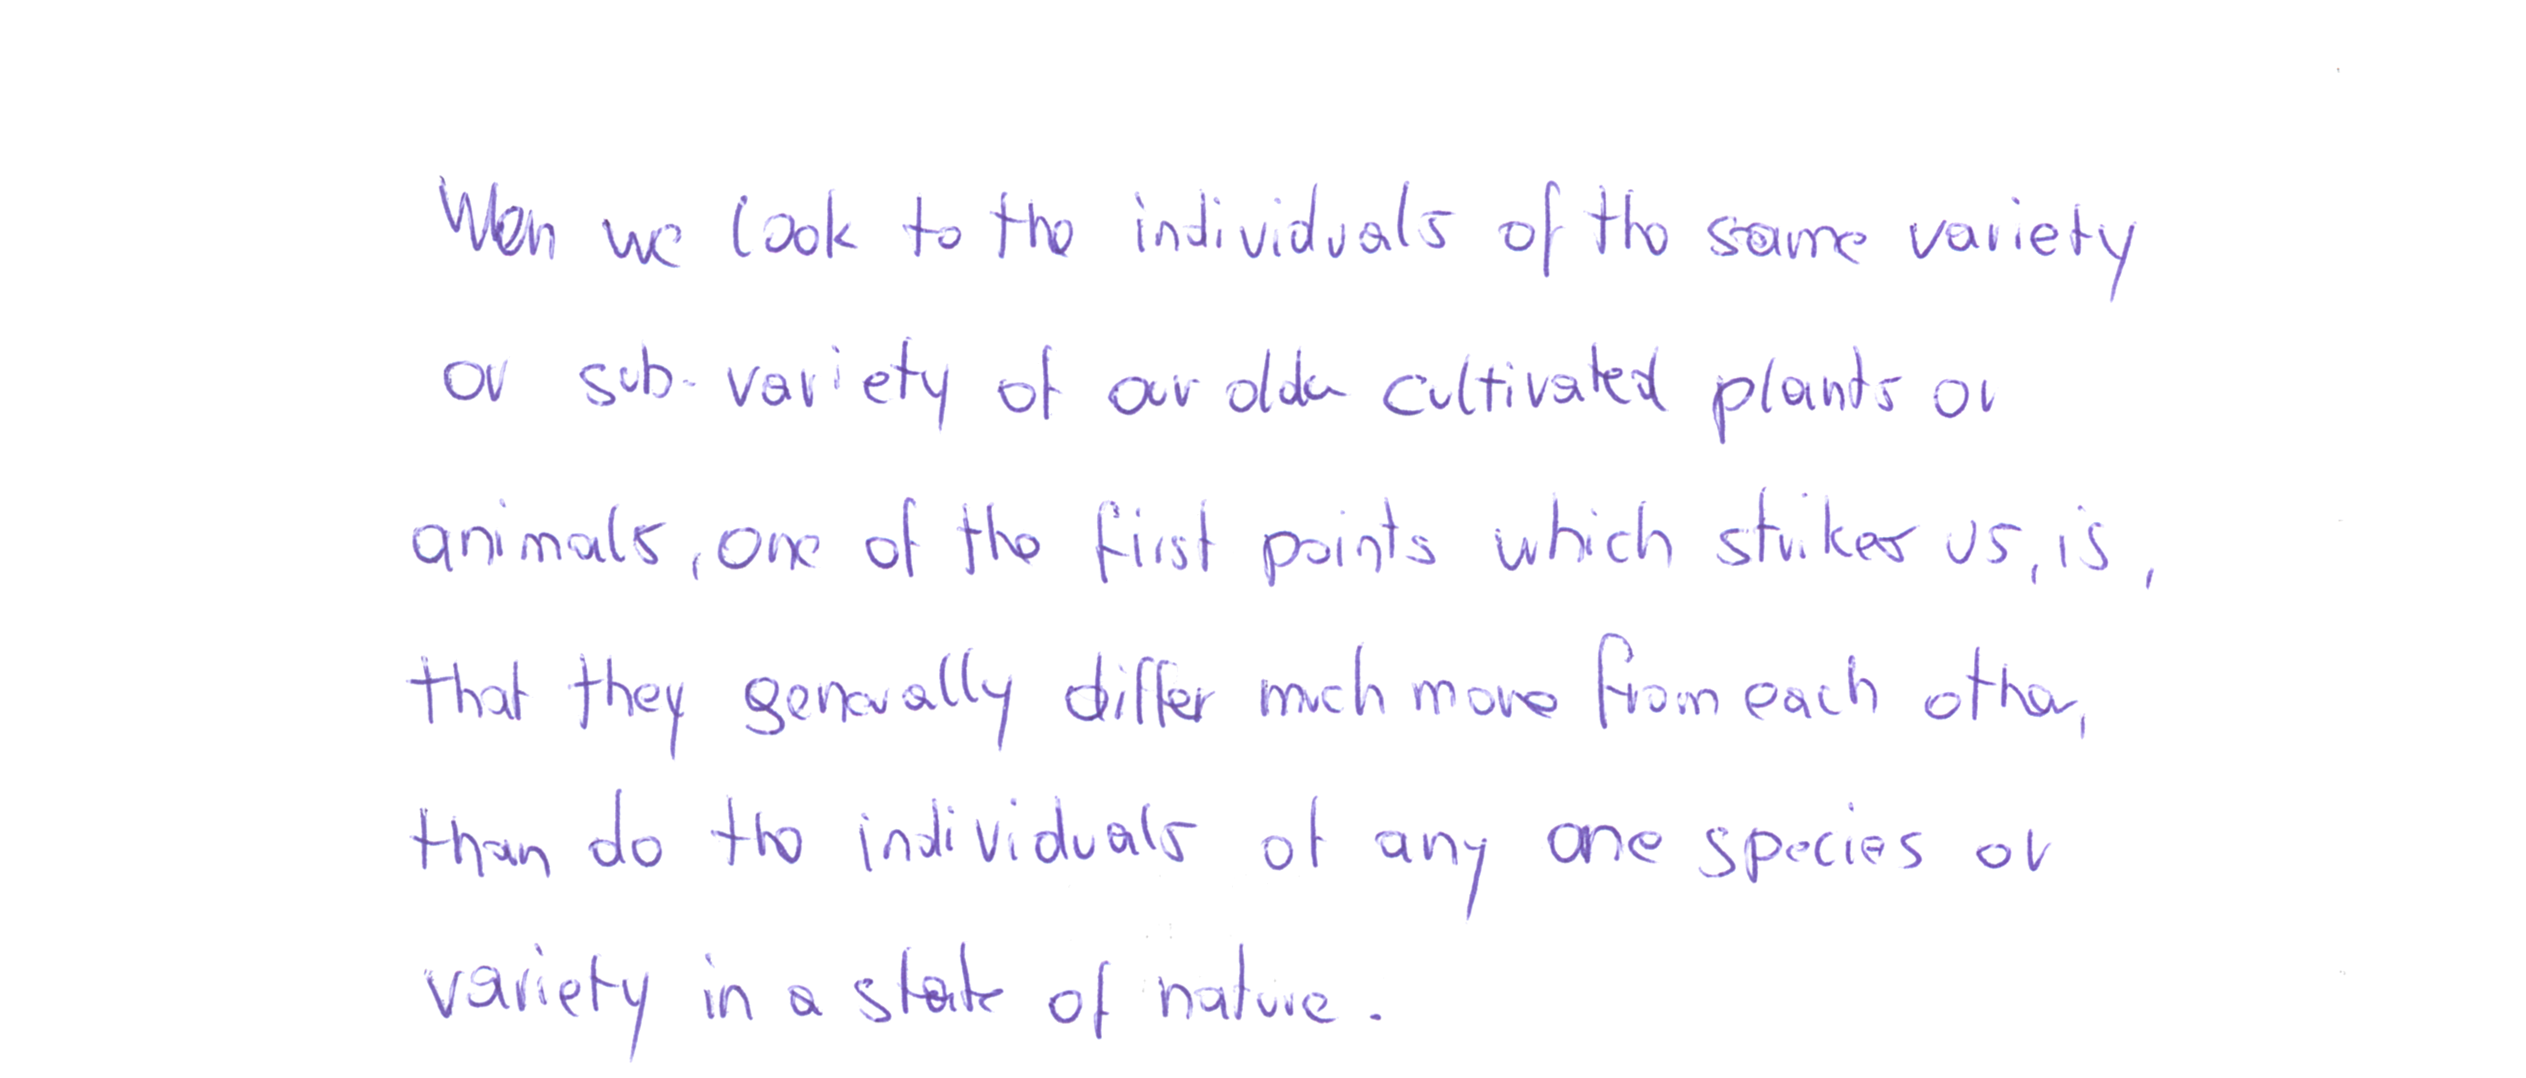 When we look to the individuals of the same variety
or sub-variety of our older cultivated plants or
animals, one of the first points which strikes us, is,
that they generally differ much more from each other,
than do the individuals of any one species or
variety in a state of nature.